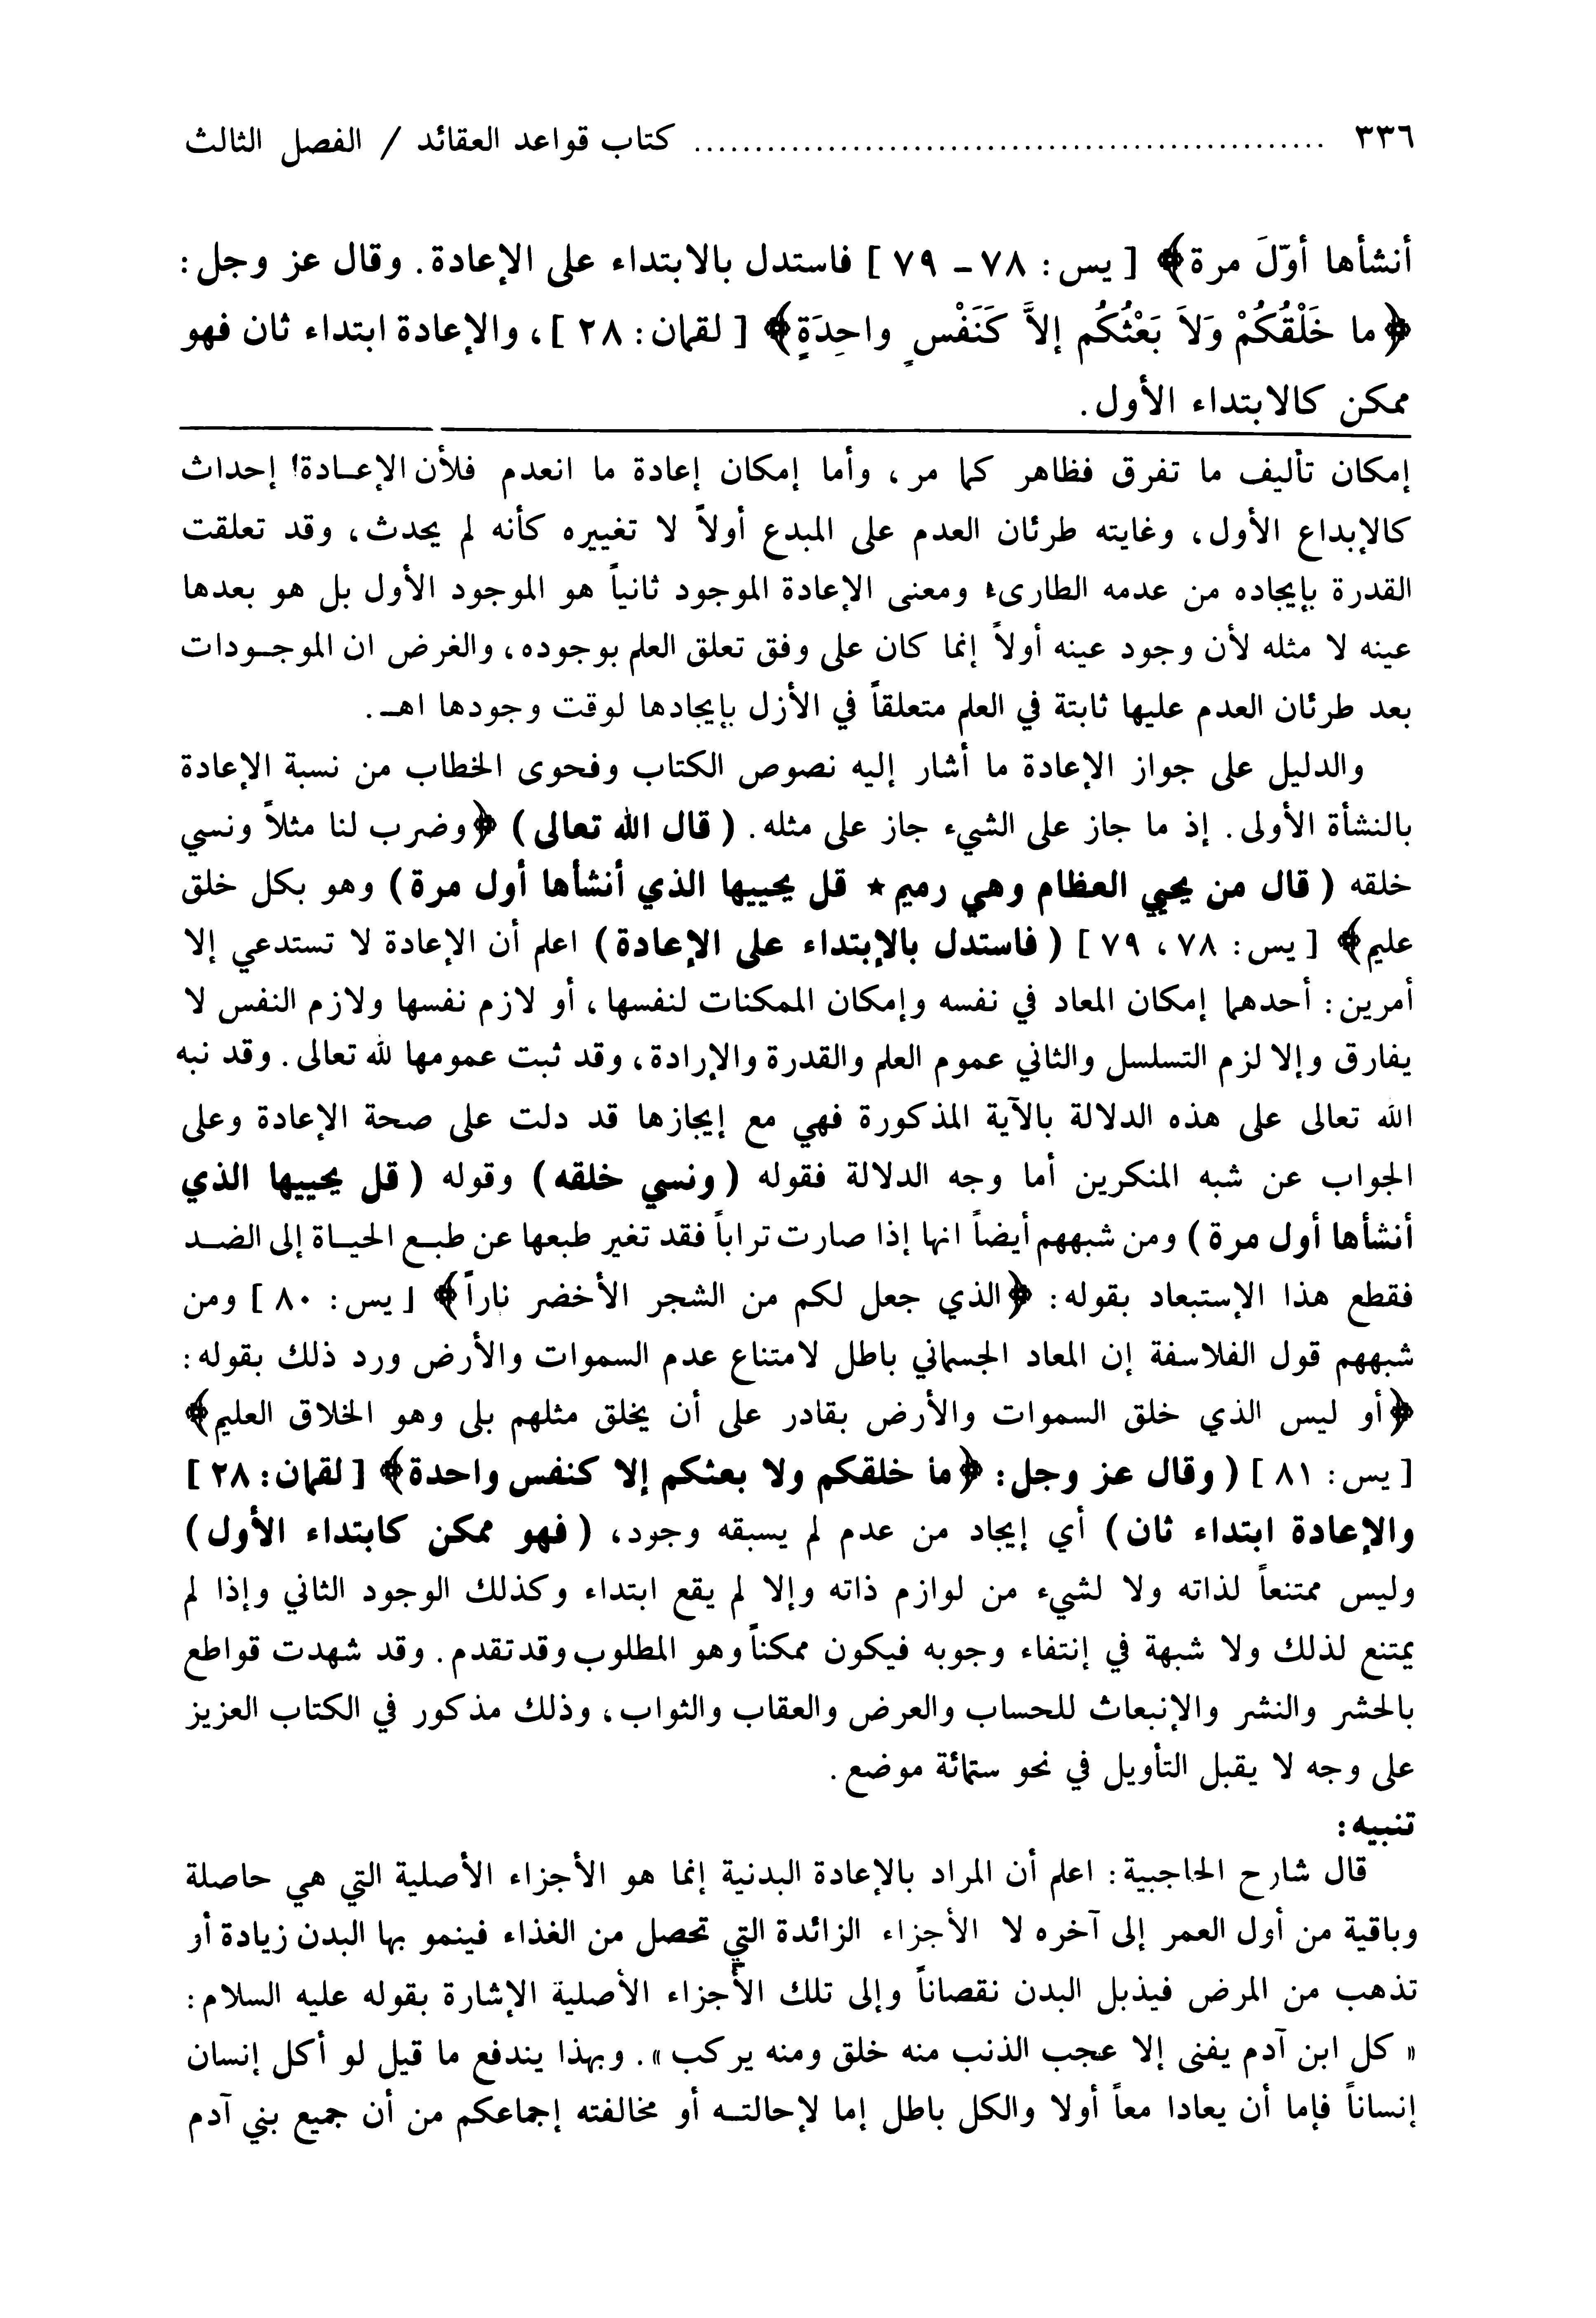 ٣٣٦ .................................................... كتاب قواعد العقائد / الفصل الثالث
أنشأها أوّلَ مرة﴾ [ يس: ٧٨ - ٧٩ ] فاستدل بالابتداء على الإعادة. وقال عز وجل:
﴿ما خَلْقُكُمْ وَلاَ بَعْثُكُم إلاَّ كَنَفْسٍ واحِدَةٍ﴾ [ لقمان: ٢٨ ]، والإعادة ابتداء ثان فهو
ممكن كالابتداء الأول.
إمكان تأليف ما تفرق فظاهر كما مر، وأما إمكان إعادة ما انعدم فلأن الإعـادة! إحداث
كالإبداع الأول، وغايته طرئان العدم على المبدع أولاً لا تغييره كأنه لم يحدث، وقد تعلقت
القدرة بإيجاده من عدمه الطارىء ومعنى الإعادة الموجود ثانياً هو الموجود الأول بل هو بعدها
عينه لا مثله لأن وجود عينه أولاً إنما كان على وفق تعلق العلم بوجوده، والغرض ان الموجـودات
بعد طرئان العدم عليها ثابتة في العلم متعلقاً في الأزل بإيجادها لوقت وجودها اهـ.
والدليل على جواز الإعادة ما أشار إليه نصوص الكتاب وفحوى الخطاب من نسبة الإعادة
بالنشأة الأولى. إذ ما جاز على الشيء جاز على مثله. ( قال الله تعالى ) ﴿وضرب لنا مثلاً ونسي
خلقه ( قال من يحيي العظام وهي رميم ★ قل يحييها الذي أنشأها أول مرة ) وهو بكل خلق
عليم﴾ [ يس: ٧٨، ٧٩ ] ( فاستدل بالإبتداء على الإعادة ) اعلم أن الإعادة لا تستدعي إلا
أمرين: أحدهما إمكان المعاد في نفسه وإمكان الممكنات لنفسها، أو لازم نفسها ولازم النفس لا
يفارق وإلا لزم التسلسل والثاني عموم العلم والقدرة والإرادة، وقد ثبت عمومها لله تعالى. وقد نبه
الله تعالى على هذه الدلالة بالآية المذكورة فهي مع إيجازها قد دلت على صحة الإعادة وعلى
الجواب عن شبه المنكرين أما وجه الدلالة فقوله ( ونسي خلقه ) وقوله ( قل يحييها الذي
أنشأها أول مرة ) ومن شبههم أيضاً انها إذا صارت تراباً فقد تغير طبعها عن طبـع الحيـاة إلى الضـد
فقطع هذا الإستبعاد بقوله: ﴿الذي جعل لكم من الشجر الأخضر ناراً﴾ [ يس: ٨٠ ] ومن
شبههم قول الفلاسفة إن المعاد الجسماني باطل لامتناع عدم السموات والأرض ورد ذلك بقوله:
﴿أو ليس الذي خلق السموات والأرض بقادر على أن يخلق مثلهم بلى وهو الخلاق العليم﴾
[ يس: ٨١ ] ( وقال عز وجل: ﴿ما خلقكم ولا بعثكم إلا كنفس واحدة﴾ [ لقمان: ٢٨ ]
والإعادة ابتداء ثان ) أي إيجاد من عدم لم يسبقه وجود، ( فهو ممكن كابتداء الأول )
وليس ممتنعاً لذاته ولا لشيء من لوازم ذاته وإلا لم يقع ابتداء وكذلك الوجود الثاني وإذا لم
يمتنع لذلك ولا شبهة في إنتفاء وجوبه فيكون ممكناً وهو المطلوب وقد تقدم. وقد شهدت قواطع
بالحشر والنشر والإنبعاث للحساب والعرض والعقاب والثواب، وذلك مذكور في الكتاب العزيز
على وجه لا يقبل التأويل في نحو ستمائة موضع.
تنبيه:
قال شارح الحاجبية: اعلم أن المراد بالإعادة البدنية إنما هو الأجزاء الأصلية التي هي حاصلة
وباقية من أول العمر إلى آخره لا الأجزاء الزائدة التي تحصل من الغذاء فينمو بها البدن زيادة أو
تذهب من المرض فيذبل البدن نقصاناً وإلى تلك الأجزاء الأصلية الإشارة بقوله عليه السلام:
« كل ابن آدم يفنى إلا عجب الذنب منه خلق ومنه يركب ». وبهذا يندفع ما قيل لو أكل إنسان
إنساناً فإما أن يعادا معاً أولا والكل باطل إما لإحالتـه أو مخالفته إجماعكم من أن جميع بني آدم